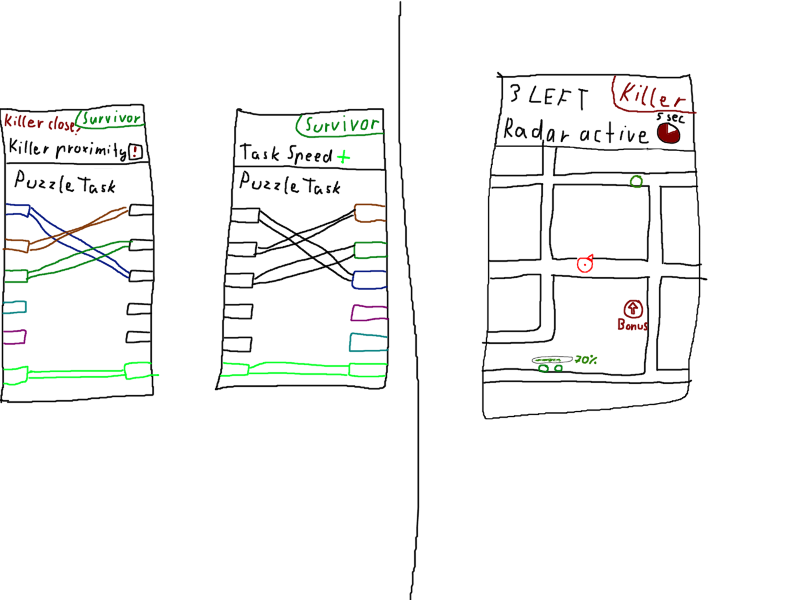 Killer close,
Survivor
Killer proximity !
Puzzle Task
Survivor
Task Speed +
Puzzle Task
3 LEFT
Killer
5 sec
Radar active
Bonus
70%